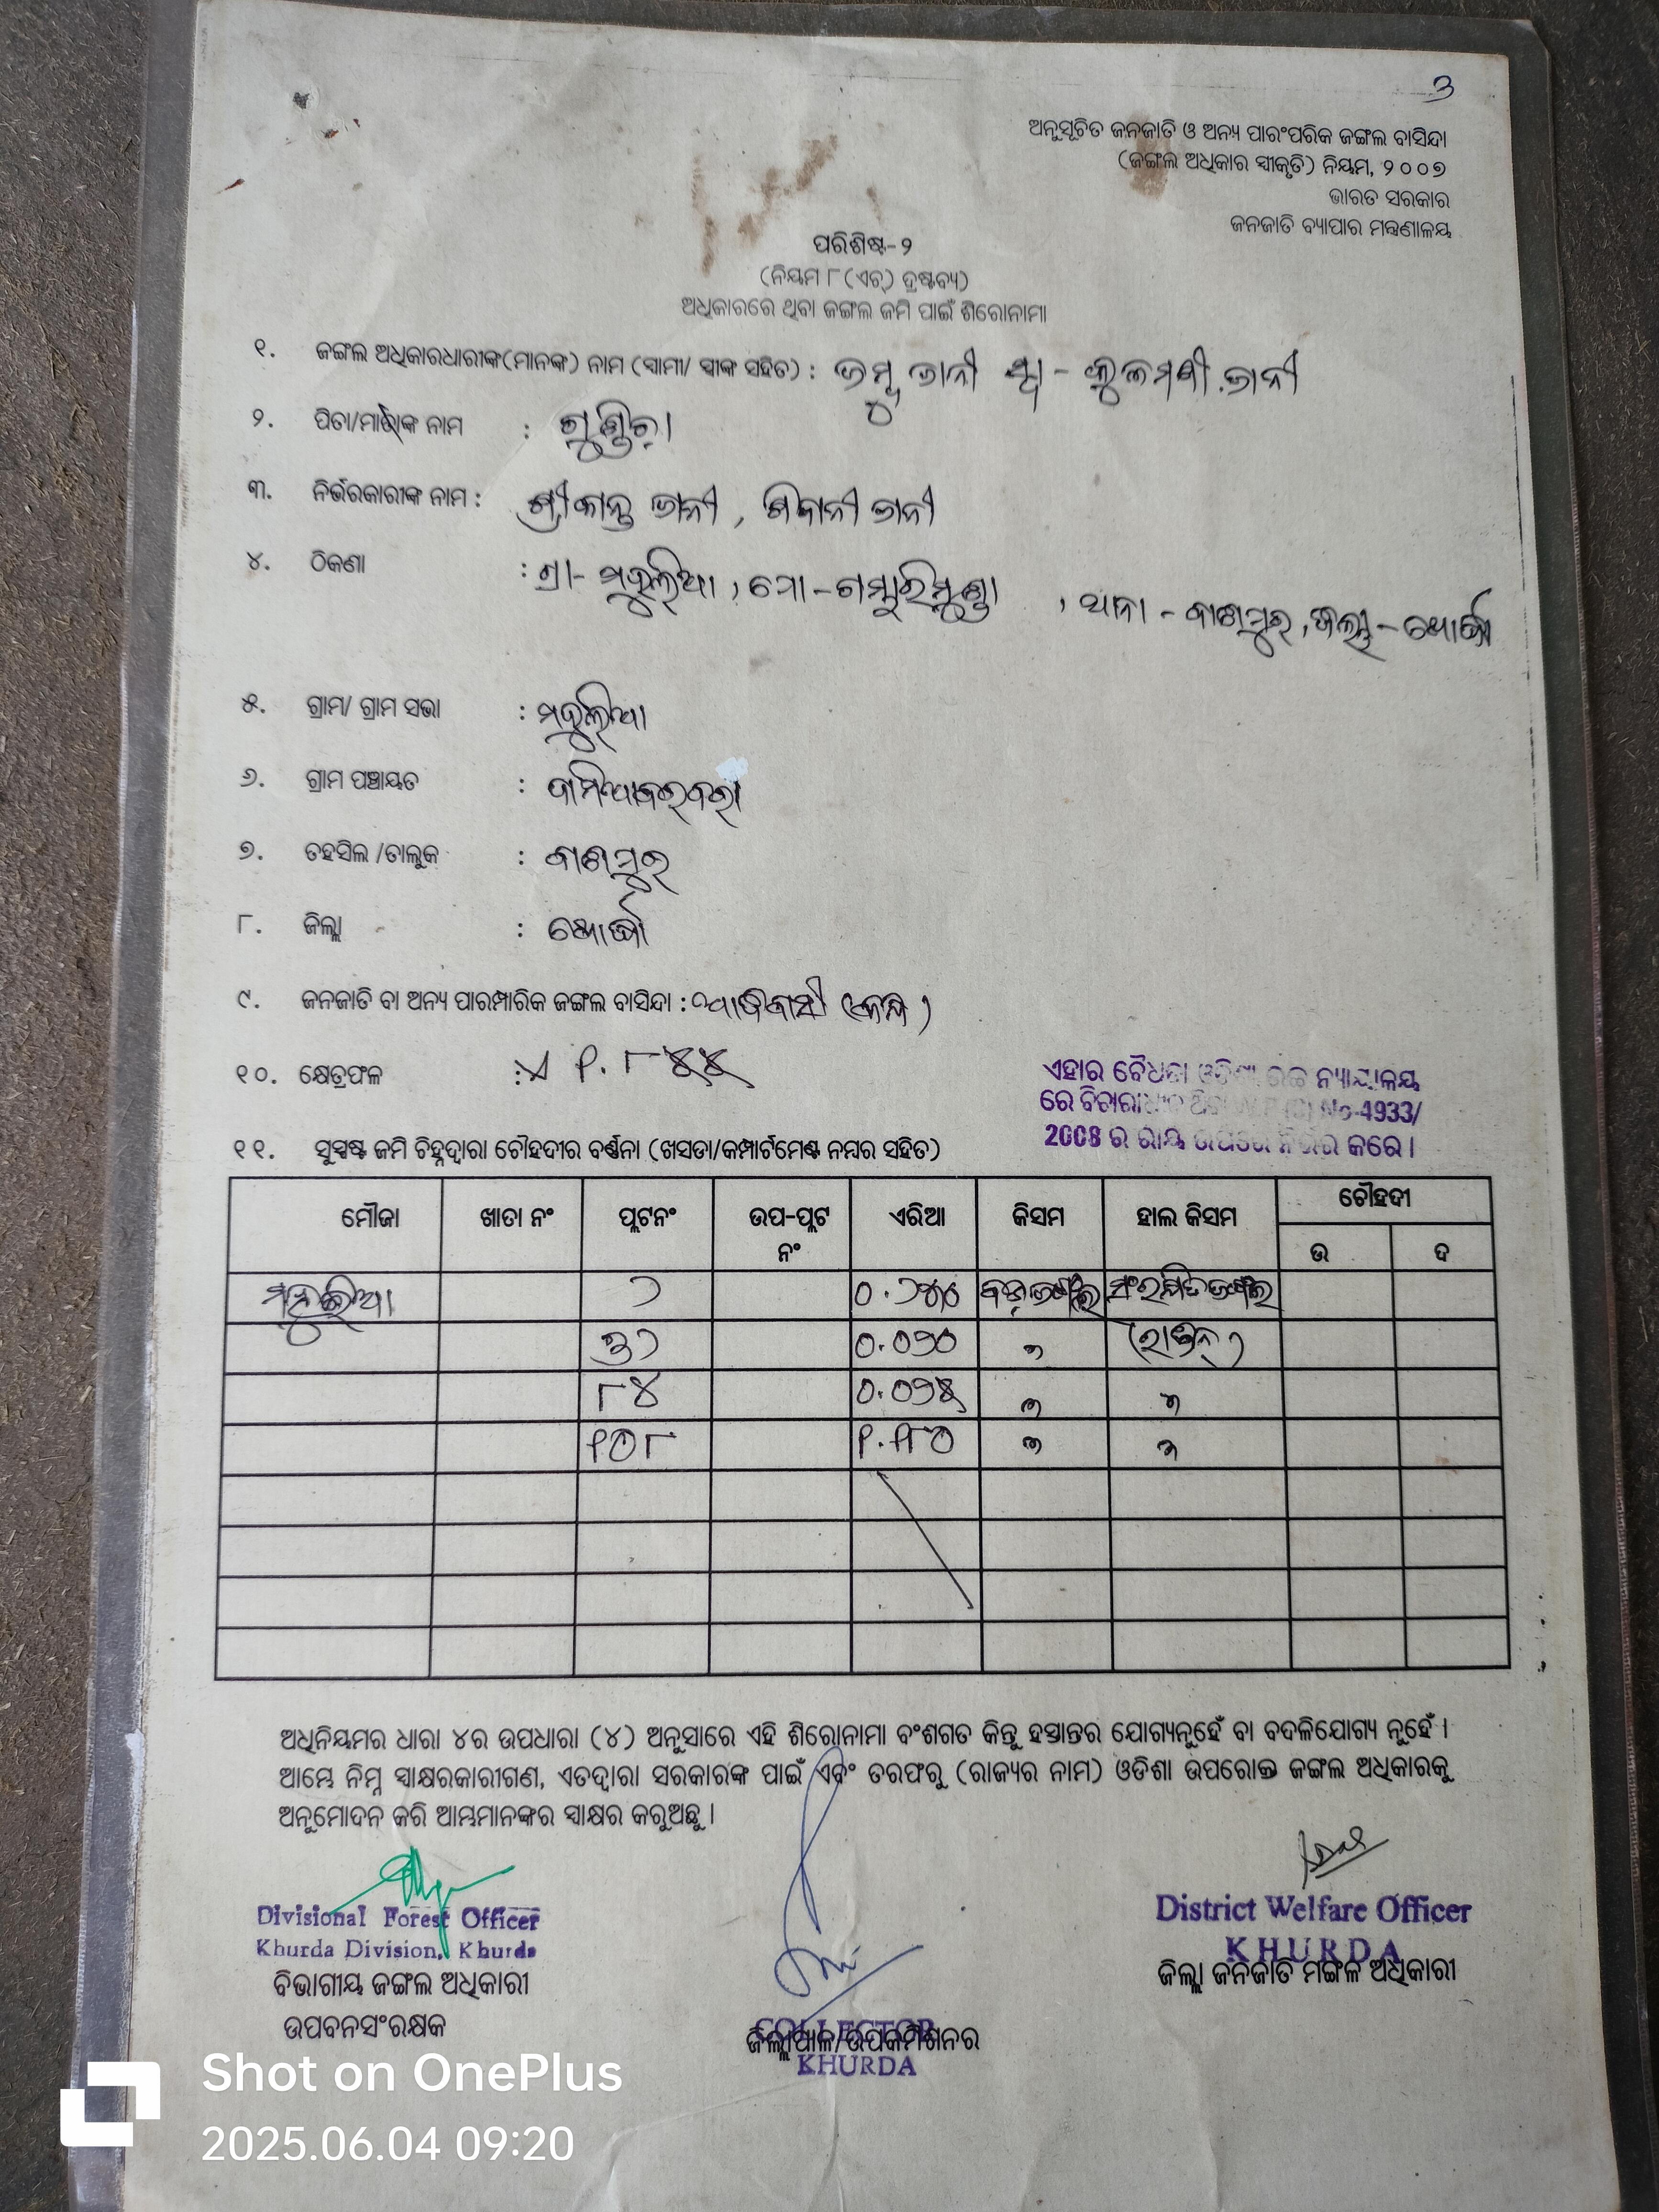 ୬
ଅନୁସୂଚିତ ଜନଜାତି ଓ ଅନ୍ୟ ପାରଂପରିକ ଜଙ୍ଗଲ ବାସିନ୍ଦା
(ଜଙ୍ଗଲ ଅଧିକାର ସ୍ୱୀକୃତି) ନିୟମ, ୨୦୦୭
ଭାରତ ସରକାର
ଜନଜାତି ବ୍ୟାପାର ମନ୍ତ୍ରଣାଳୟ
ପରିଶିଷ୍ଟ-୨
(ନିୟମ ୮(ଏଚ୍) ଦ୍ରଷ୍ଟବ୍ୟ)
ଅଧିକାରରେ ଥିବା ଜଙ୍ଗଲ ଜମି ପାଇଁ ଶିରୋନାମା
୧. ଜଙ୍ଗଲ ଅଧିକାରଧାରୀଙ୍କ(ମାନଙ୍କ) ନାମ (ସ୍ୱାମୀ/ ସ୍ତ୍ରୀଙ୍କ ସହିତ) : ଜାନୀ
୨. ପିତା/ମାତାଙ୍କ ନାମ : ଗୁଣ୍ଡିଚା
୩. ନିର୍ଭରକାରୀଙ୍କ ନାମ : ଶ୍ରୀକାନ୍ତ ଜାନୀ, ଶିବାନୀ ଜାନୀ
୪. ଠିକଣା : ଗ୍ରା- ମହୁଲିଆ, ପୋ-ଗମ୍ଭାରିମୁଣ୍ଡା, ଥାନା - ବାଣପୁର, ଜିଲ୍ଲା-ଖୋର୍ଦ୍ଧା
୫. ଗ୍ରାମ/ ଗ୍ରାମ ସଭା : ମହୁଲିଆ
୬. ଗ୍ରାମ ପଞ୍ଚାୟତ :
୭. ତହସିଲ /ତାଲୁକ : ବାଣପୁର
୮. ଜିଲ୍ଲା : ଖୋର୍ଦ୍ଧା
୯. ଜନଜାତି ବା ଅନ୍ୟ ପାରମ୍ପାରିକ ଜଙ୍ଗଲ ବାସିନ୍ଦା : ଆଦିବାସୀ (କନ୍ଧ)
୧୦. କ୍ଷେତ୍ରଫଳ :
ଏହାର ବୈଧତା ଓଡିଶା ଉଚ୍ଚ ନ୍ୟାୟାଳୟ
ରେ ବିଚାରାଧୀନ No-4933/
2008 ର ରାୟ ଉପରେ ନିର୍ଭର କରେ।
୧୧. ସୁସ୍ପଷ୍ଟ ଜମି ଚିହ୍ନଦ୍ୱାରା ଚୌହଦୀର ବର୍ଣ୍ଣନା (ଖସଡା/କମ୍ପାର୍ଟମେଣ୍ଟ ନମ୍ବର ସହିତ)
ମୌଜା ଖାତା ନଂ ପ୍ଲଟନଂ ଉପ-ପ୍ଲଟ ନଂ ଏରିଆ କିସମ ହାଲ କିସମ ଚୌହଦୀ
ଉ ଦ
ମହୁଲିଆ ୨
୬୨ "
୮୪ " "
୧୦୮ " "
ଅଧିନିୟମର ଧାରା ୪ର ଉପଧାରା (୪) ଅନୁସାରେ ଏହି ଶିରୋନାମା ବଂଶଗତ କିନ୍ତୁ ହସ୍ତାନ୍ତର ଯୋଗ୍ୟନୁହେଁ ବା ବଦଳିଯୋଗ୍ୟ ନୁହେଁ।
ଆମ୍ଭେ ନିମ୍ନ ସ୍ୱାକ୍ଷରକାରୀଗଣ, ଏତଦ୍ୱାରା ସରକାରଙ୍କ ପାଇଁ ଏବଂ ତରଫରୁ (ରାଜ୍ୟର ନାମ) ଓଡିଶା ଉପରୋକ୍ତ ଜଙ୍ଗଲ ଅଧିକାରକୁ
ଅନୁମୋଦନ କରି ଆମ୍ଭମାନଙ୍କର ସ୍ୱାକ୍ଷର କରୁଅଛୁ।
Divisional Forest Officer
Khurda Division, Khurda
ବିଭାଗୀୟ ଜଙ୍ଗଲ ଅଧିକାରୀ
ଉପବନସଂରକ୍ଷକ
COLLECTOR
ଜିଲ୍ଲାପାଳ/ଉପକମିଶନର
KHURDA
District Welfare Officer
KHURDA
ଜିଲ୍ଲା ଜନଜାତି ମଙ୍ଗଳ ଅଧିକାରୀ
Shot on OnePlus
2025.06.04 09:20